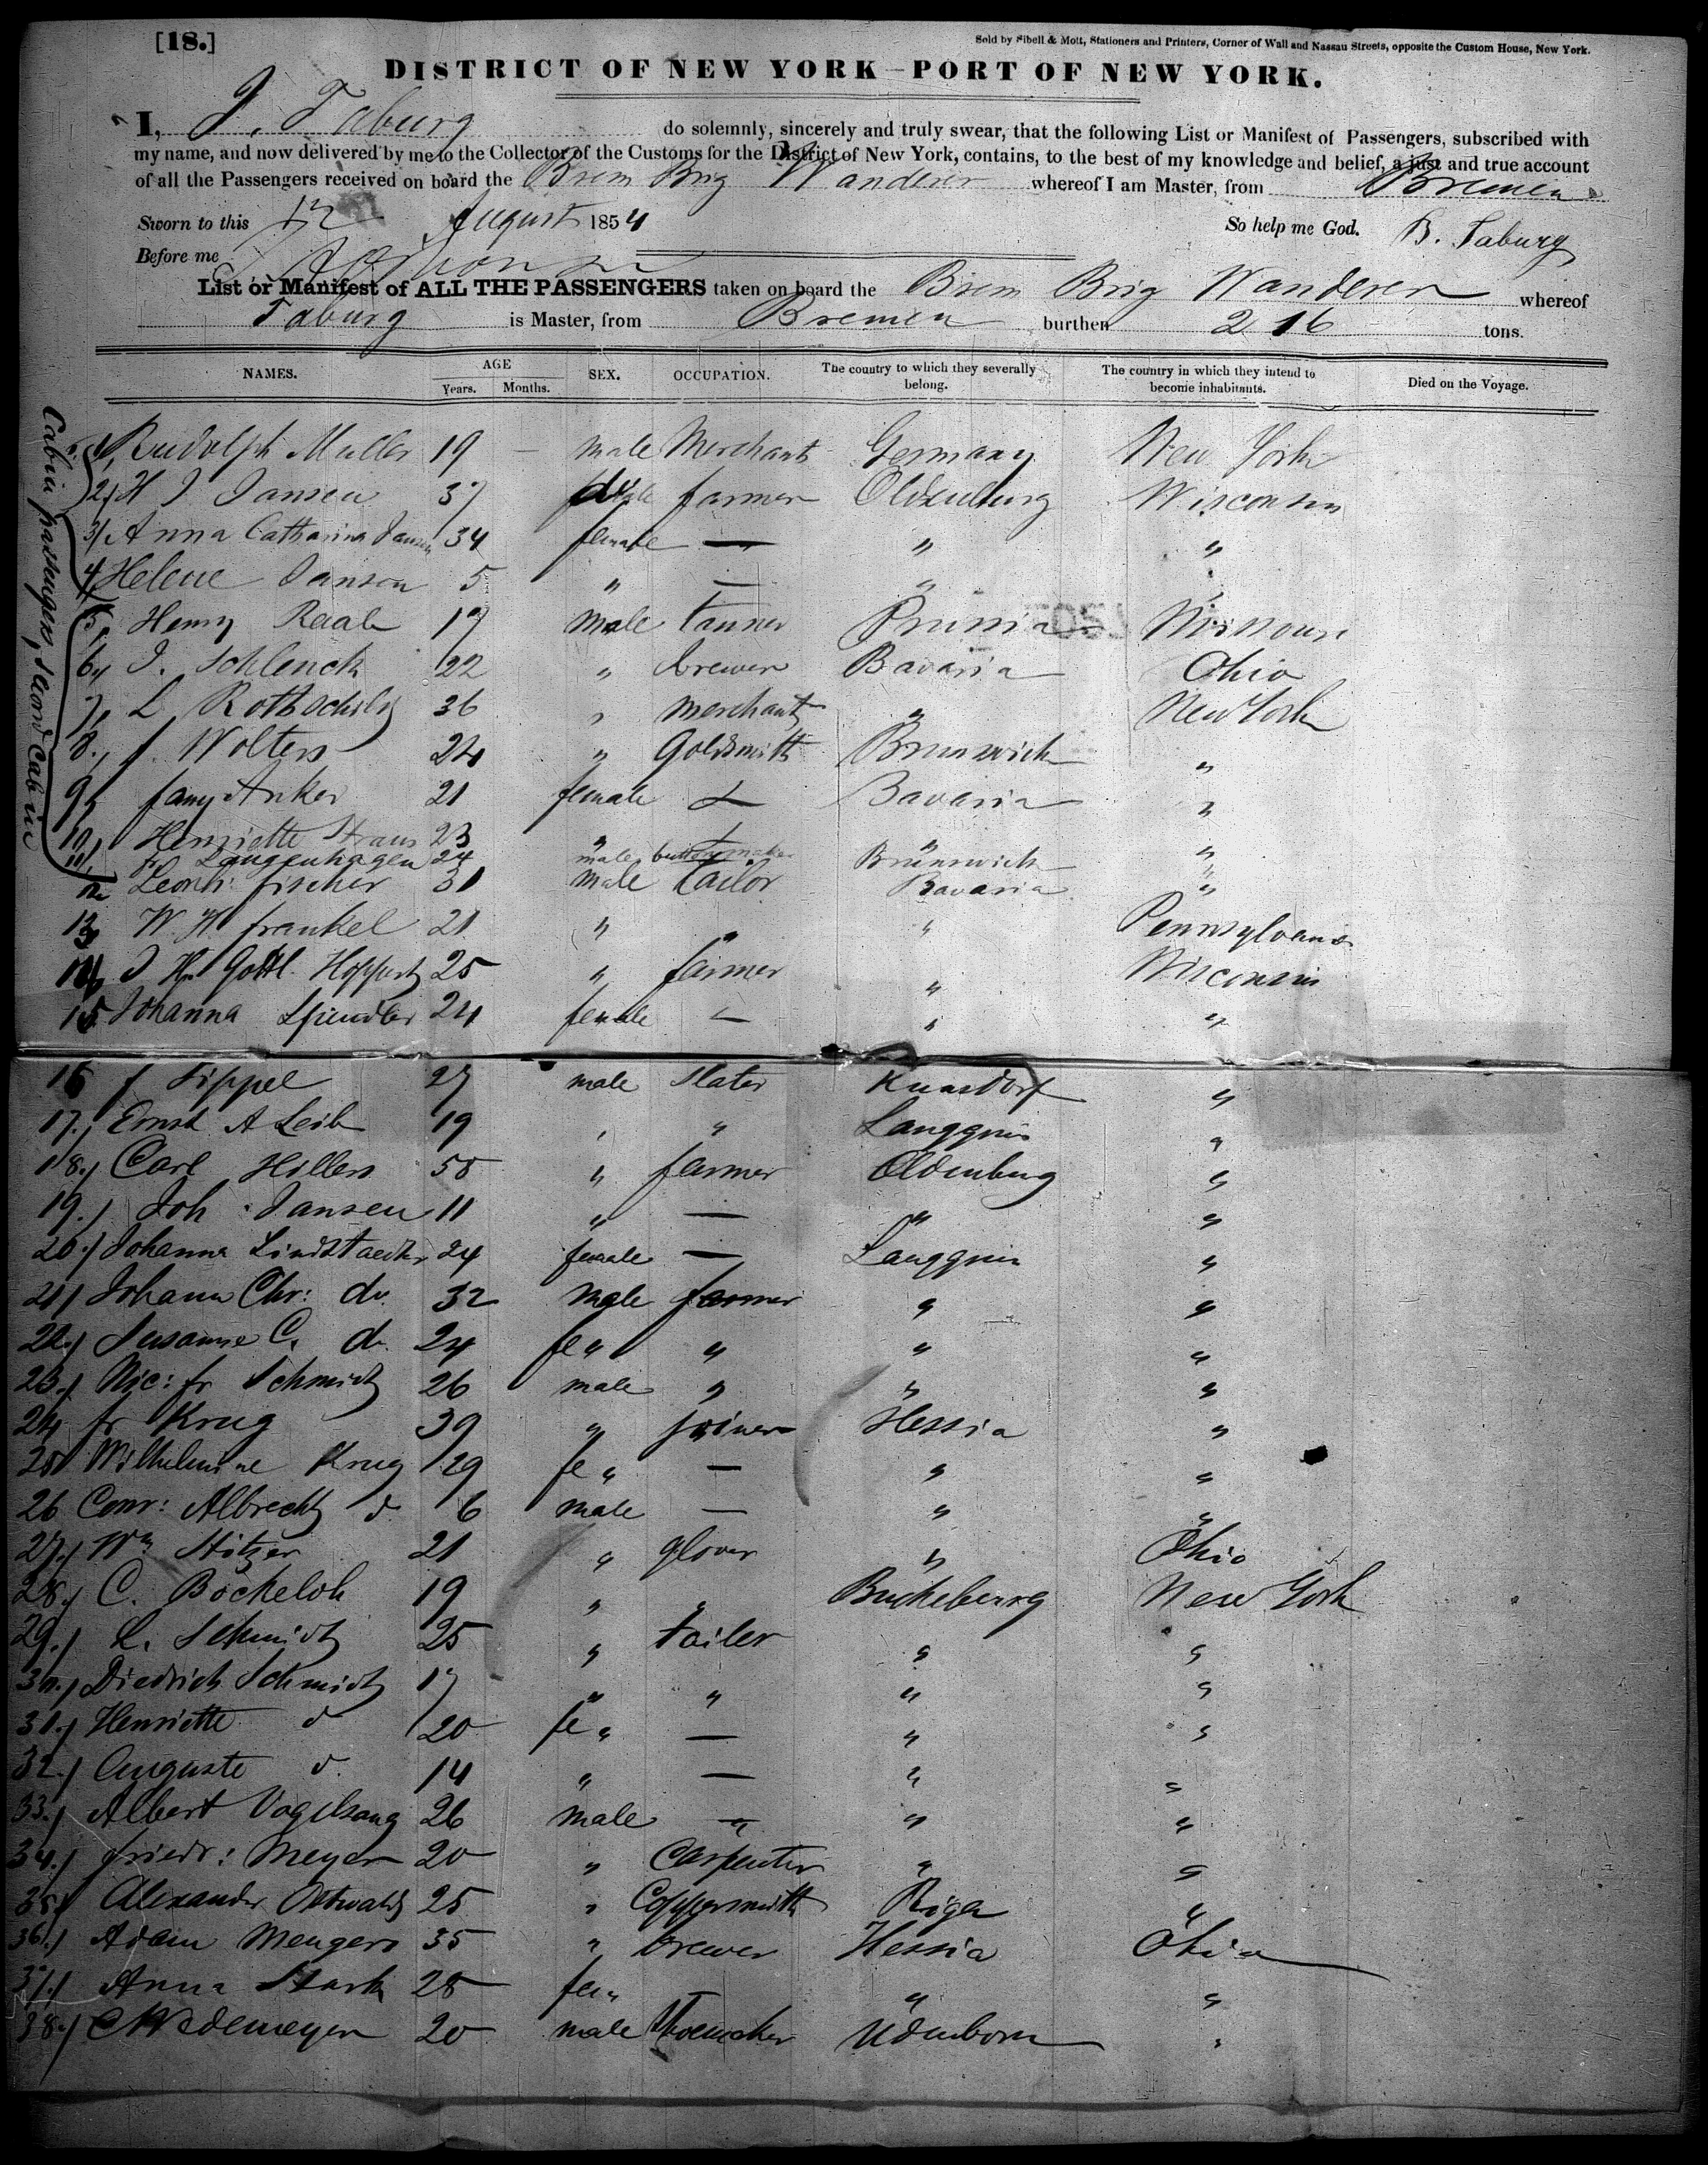 [18.]
Sold by Sibell & Mott, Stationers and Printers, Corner of Wall and Nassau Streets, opposite the Custom House, New York.
DISTRICT OF NEW YORK—PORT OF NEW YORK.
I, J. Taburg do solemnly, sincerely and truly swear, that the following List or Manifest of Passengers, subscribed with
my name, and now delivered by me to the Collector of the Customs for the District of New York, contains, to the best of my knowledge and belief, a just and true account
of all the Passengers received on board the Brem Brig Wanderer whereof I am Master, from Bremen
Sworn to this 12 August 1854 So help me God. B. Taburg
Before me
List or Manifest of ALL THE PASSENGERS taken on board the Brem Brig Wanderer whereof
Taburg is Master, from Bremen burthen 216 tons.
NAMES. AGE Years. Months. SEX. OCCUPATION. The country to which they severally belong. The country in which they intend to become inhabitants. Died on the Voyage.
Cabin passenger, second Cabin
1, Rudolph Muller 19 — male Merchant Germany New York
2, H J Jansen 37 male farmer Oldenburg Wisconsin
3, Anna Catharina Jansen 34 female — " "
4, Helene Janson 5 " — " "
5, Henry Raab 17 Male tanner Prussia Missouri
6, J. Schlenck 22 " brewer Bavaria Ohio
7, L Rothschild 36 " merchant " New York
8., f Wolters 24 " Goldsmith Brunswick "
9, fany Anker 21 female — Bavaria "
10, Henriette Straus 23 " — " "
11, Fr Langenhagen 24 male button maker Brunswick "
12 Leonh: fischer 31 male tailor Bavaria "
13 W. H frankel 21 " " " Pennsylvania
14 J Hr Gottl. Hoppert 25 " farmer " Wisconsin
15 Johanna Spindler 24 female — " "
16 f Tippel 27 male slater Kunsdorf "
17., Ernst A Leib 19 " " Langgrün "
18., Carl Hillers 58 " farmer Oldenburg "
19., Joh. Jansen 11 " — " "
20., Johanna Lindstaedter 24 female — Langgrün "
21, Johann Chr: do. 32 Male farmer " "
22., Susanne C. do. 24 fe " " " "
23., Nic: fr Schmidt 26 male " " "
24 fr Krug 39 " joiner Hessia "
25 Wilhelmine Krug 29 fe " — " "
26 Conr: Albrecht d 6 male — " "
27., Wm Hitzer 21 " glover " Ohio
28., C. Böckeloh 19 " " Buckeburg New York
29., L. Schmidt 25 " tailer " "
30., Diedrich Schmidt 17 " " " "
31., Henriette d 20 fe " — " "
32., Auguste d. 14 " — " "
33., Albert Vogelsang 26 male — " "
34., friedr: Meyer 20 " Carpenter " "
35., Alexander Ostwald 25 " Coppersmith Riga "
36., Adam Mengers 35 " brewer Hessia Ohio
37., Anna Stark 28 fe " — " "
38., C Wedemeyer 20 male Shoemaker "